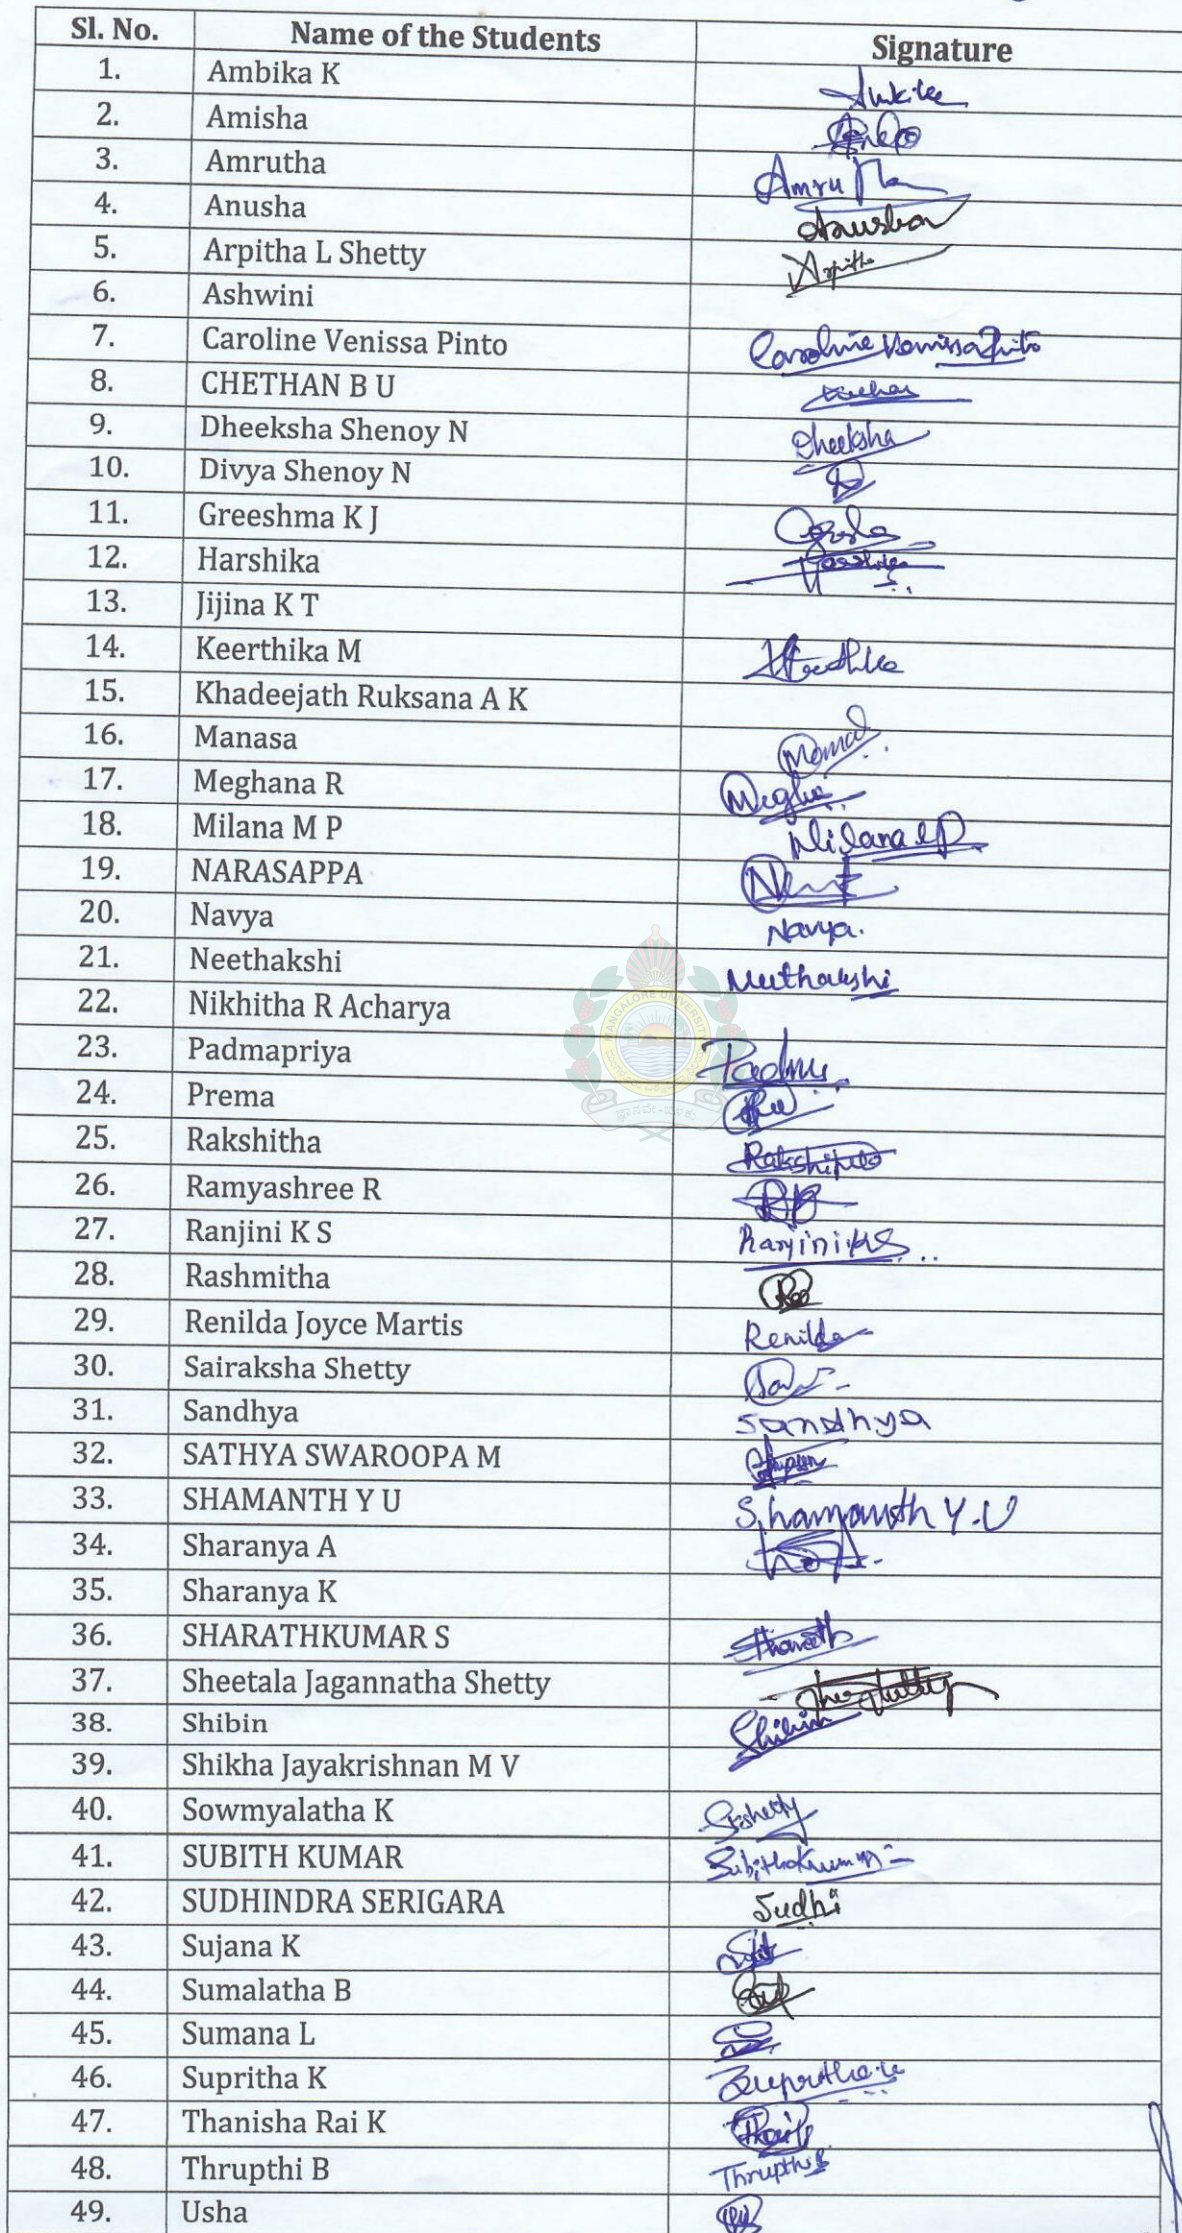 Sl. No. Name of the Students Signature
1. Ambika K
2. Amisha
3. Amrutha Amrutha
4. Anusha Anusha
5. Arpitha L Shetty Arpitha
6. Ashwini
7. Caroline Venissa Pinto Caroline Venissa Pinto
8. CHETHAN B U
9. Dheeksha Shenoy N Dheeksha
10. Divya Shenoy N
11. Greeshma K J
12. Harshika
13. Jijina K T
14. Keerthika M
15. Khadeejath Ruksana A K
16. Manasa
17. Meghana R Megha
18. Milana M P Milana M P
19. NARASAPPA
20. Navya Navya.
21. Neethakshi Neethakshi
22. Nikhitha R Acharya
23. Padmapriya Padma
24. Prema
25. Rakshitha Rakshitha
26. Ramyashree R
27. Ranjini K S Ranjini K S
28. Rashmitha
29. Renilda Joyce Martis Renilda
30. Sairaksha Shetty
31. Sandhya Sandhya
32. SATHYA SWAROOPA M
33. SHAMANTH Y U Shamanth Y.U
34. Sharanya A
35. Sharanya K
36. SHARATHKUMAR S Sharath
37. Sheetala Jagannatha Shetty
38. Shibin Shibin
39. Shikha Jayakrishnan M V
40. Sowmyalatha K
41. SUBITH KUMAR
42. SUDHINDRA SERIGARA Sudhi
43. Sujana K
44. Sumalatha B
45. Sumana L
46. Supritha K Supritha K
47. Thanisha Rai K
48. Thrupthi B Thrupthi B
49. Usha
MANGALORE UNIVERSITY
ಜ್ಞಾನವೇ-ಬೆಳಕು